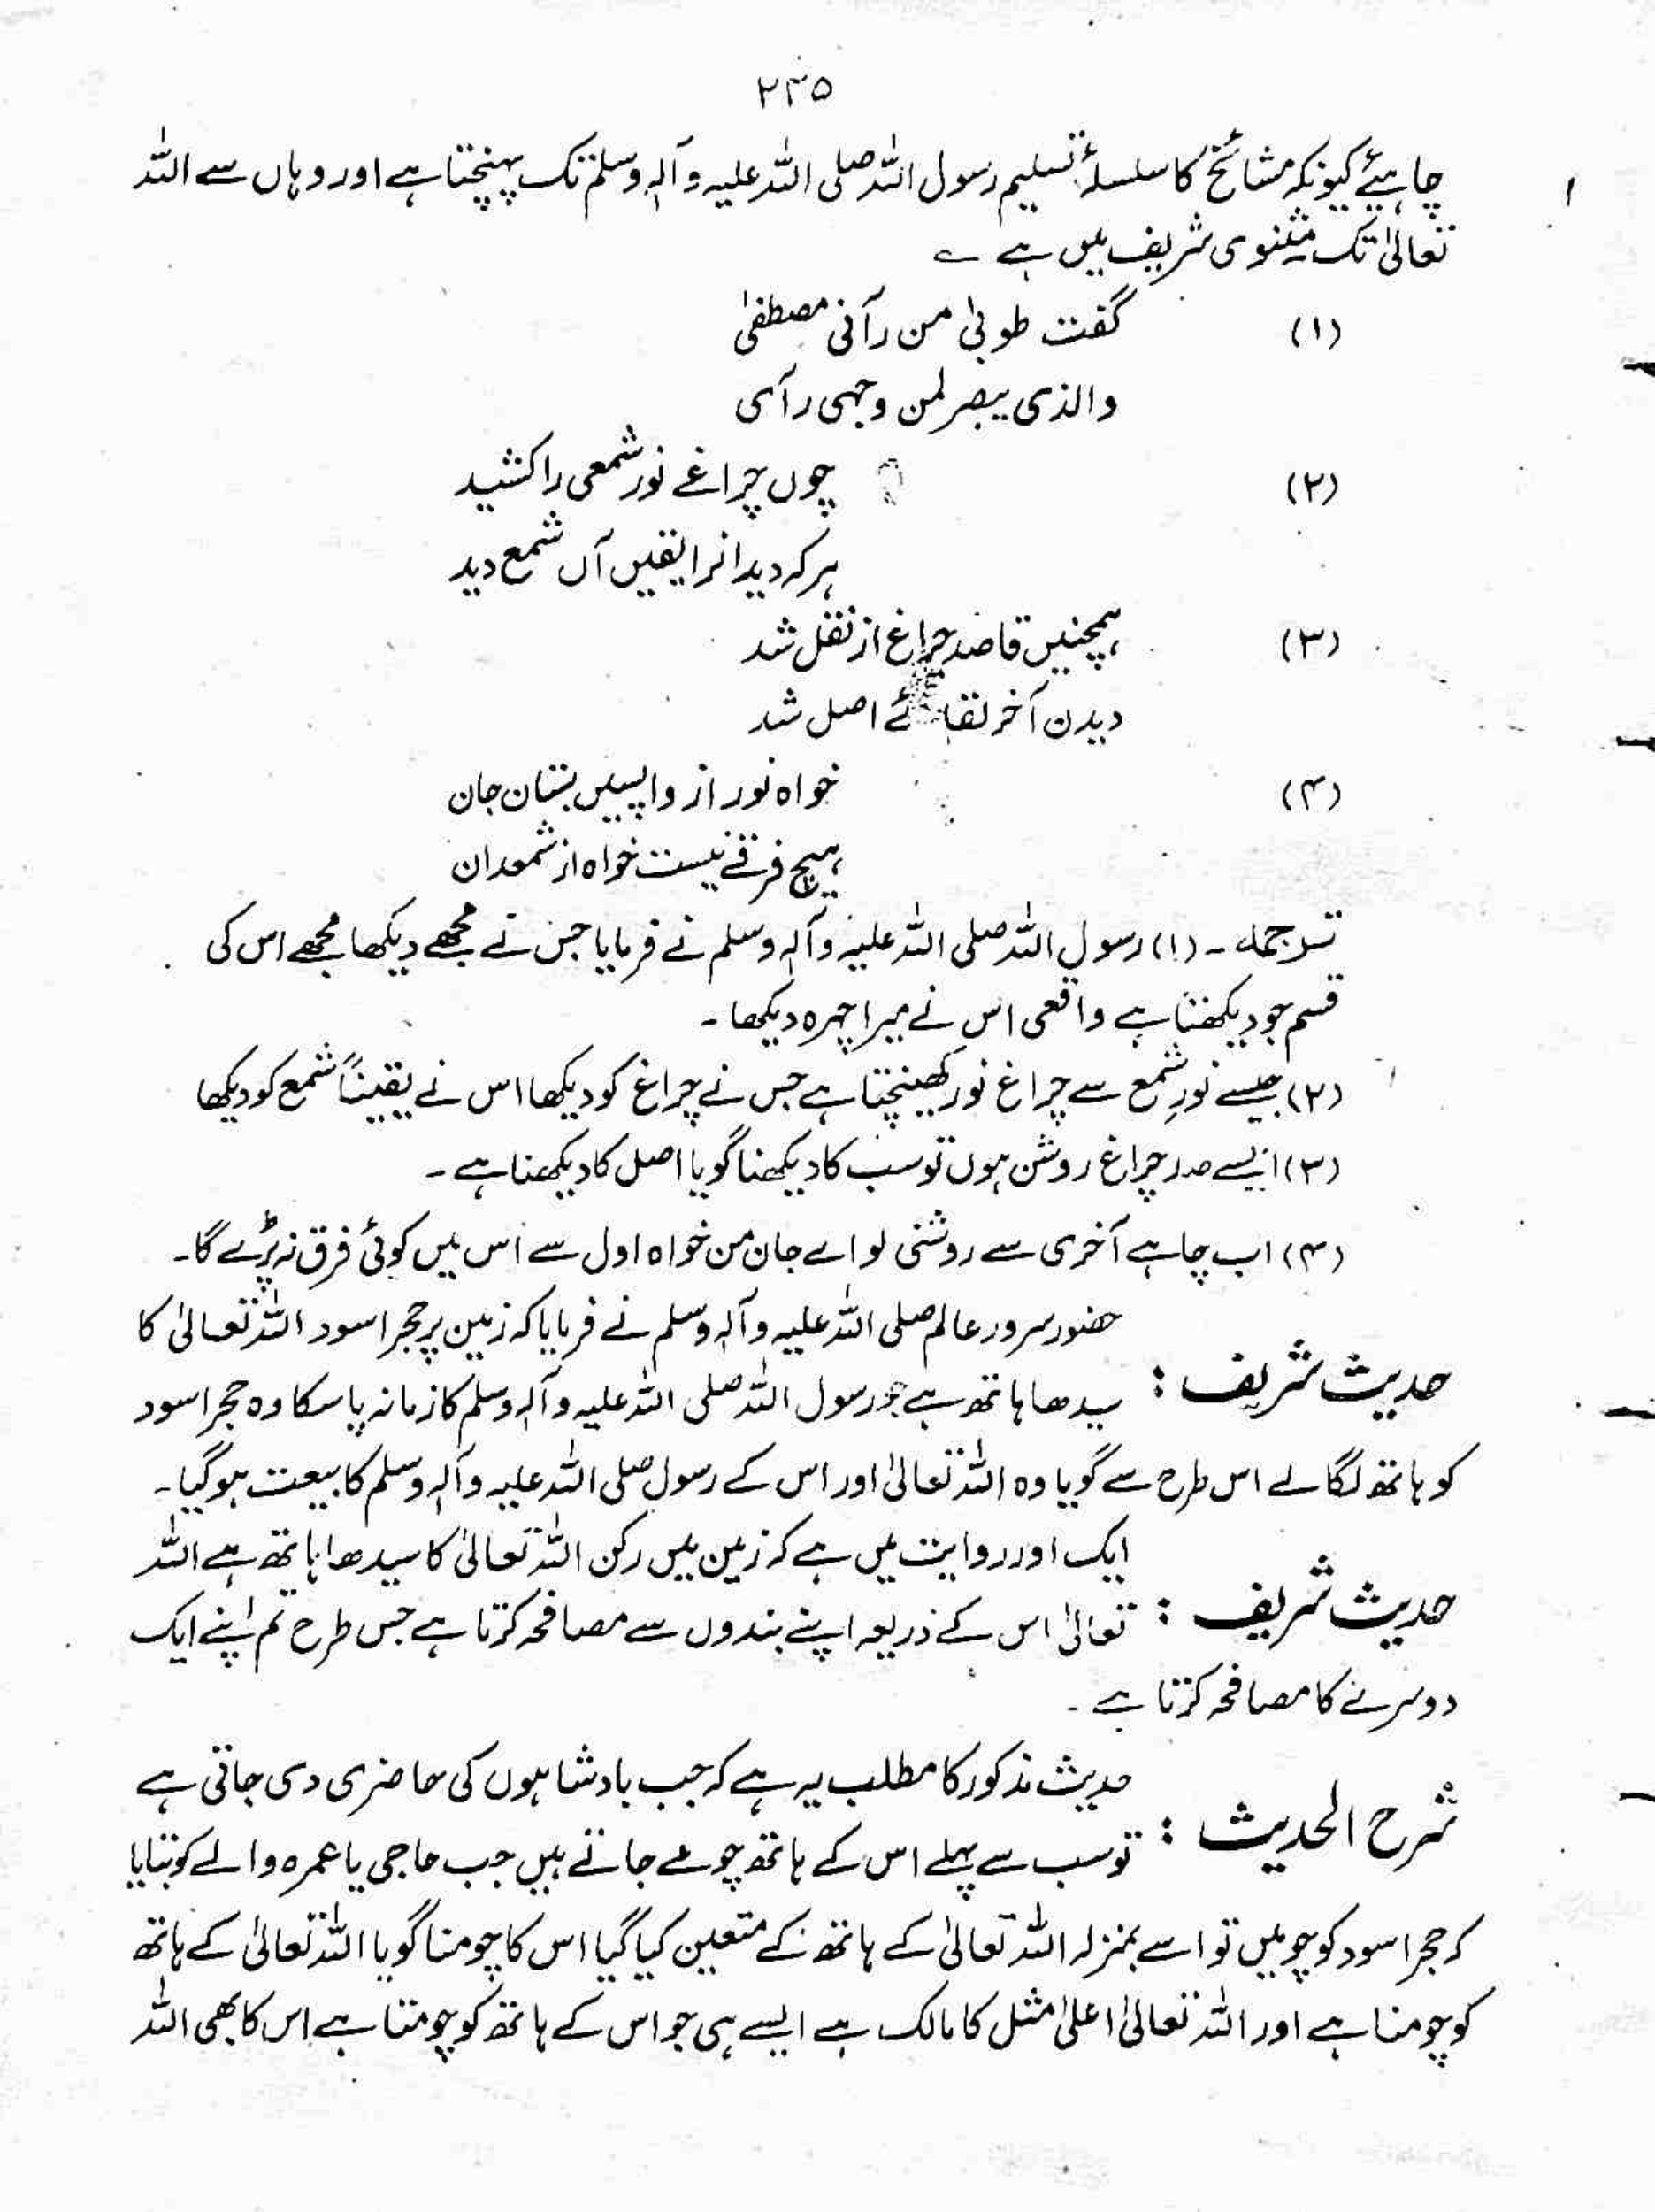 ۲۴۵
چاہیئے کیونکہ مشائخ کا سلسلۂ تسلیم رسول اللہ صلی اللہ علیہ وآلہٖ وسلم تک پہنچتا ہے اور وہاں سے اللہ
تعالیٰ تک مثنوی شریف میں ہے ؎
(۱) گفت طوبیٰ من رآنی مصطفیٰ
والذی یبصر لمن وجہی رآی
(۲) چوں چراغے نور شمعی را کشید
ہر کہ دید انرا یقیں آں شمع دید
(۳) ہمچنیں تا صد چراغ از نقل شد
دیدن آخر لقائے اصل شد
(۴) خواہ نور از واپسیں بستان جان
ہیچ فرقے نیست خواہ از شمعدان
ترجمہ ۔ (۱) رسول اللہ صلی اللہ علیہ وآلہٖ وسلم نے فرمایا جس نے مجھے دیکھا مجھے اس کی
قسم جو دیکھتا ہے واقعی اس نے میرا چہرہ دیکھا ۔
(۲) جیسے نورِ شمع سے چراغ نور کھینچتا ہے جس نے چراغ کو دیکھا اس نے یقیناً شمع کو دیکھا
(۳) ایسے صدر چراغ روشن ہوں تو سب کا دیکھنا گویا اصل کا دیکھنا ہے ۔
(۴) اب چاہے آخری سے روشنی لو اے جان من خواہ اول سے اس میں کوئی فرق نہ پڑے گا ۔
حضور سرور عالم صلی اللہ علیہ وآلہٖ وسلم نے فرمایا کہ زمین پر حجر اسود اللہ تعالیٰ کا
حدیث شریف : سیدھا ہاتھ ہے جو رسول اللہ صلی اللہ علیہ وآلہٖ وسلم کا زمانہ پا سکا وہ حجر اسود
کو ہاتھ لگا لے اس طرح سے گویا وہ اللہ تعالیٰ اور اس کے رسول صلی اللہ علیہ وآلہٖ وسلم کا بیعت ہو گیا ۔
ایک اور روایت میں ہے کہ زمین میں رکن اللہ تعالیٰ کا سیدھا ہاتھ ہے اللہ
حدیث شریف : تعالیٰ اس کے ذریعہ اپنے بندوں سے مصافحہ کرتا ہے جس طرح تم اپنے ایک
دوسرے کا مصافحہ کرتا ہے ۔
حدیث مذکور کا مطلب یہ ہے کہ جب بادشاہوں کی حاضری دی جاتی ہے
شرح الحدیث : تو سب سے پہلے اس کے ہاتھ چومے جاتے ہیں جب حاجی یا عمرہ والے کو بتایا
کہ حجر اسود کو چومیں تو اسے بمنزلہ اللہ تعالیٰ کے ہاتھ کے متعین کیا گیا اس کا چومنا گویا اللہ تعالیٰ کے ہاتھ
کو چومنا ہے اور اللہ تعالیٰ اعلیٰ مثل کا مالک ہے ایسے ہی جو اس کے ہاتھ کو چومتا ہے اس کا بھی اللہ